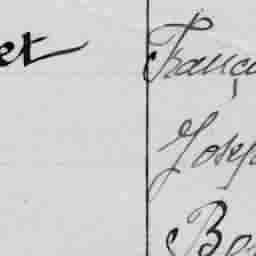 et Franç
Josep
Be